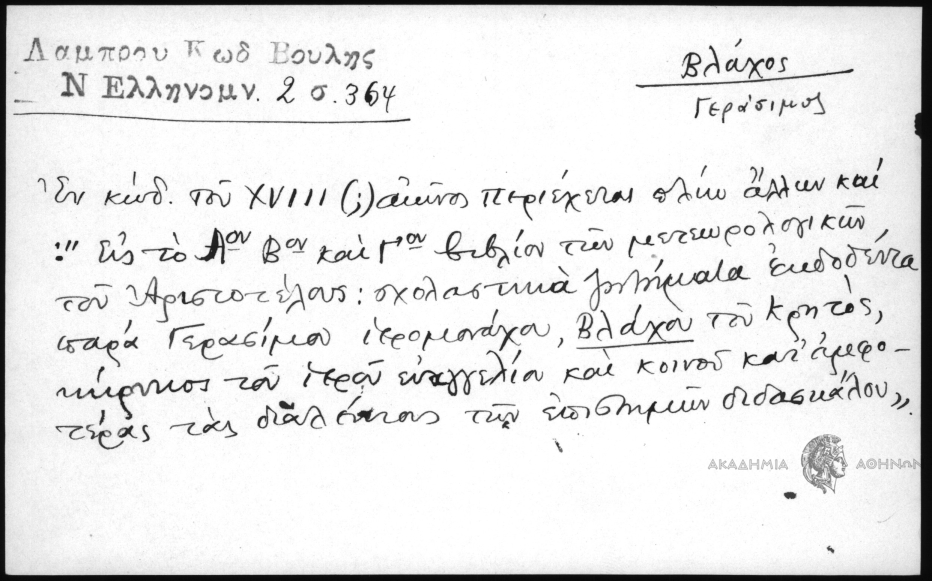 Λαμπρου Κωδ Βουλης
Ν Ελληνομν. 2 σ. 364
Βλάχος
Γεράσιμος
Ἐν κώδ. τοῦ XVIII (;) αἰῶνος περιέχεται πλὴν ἄλλων καί
:" Εἰς τὸ Αον Βον καὶ Γον βιβλίον τῶν μετεωρολογικῶν
τοῦ Ἀριστοτέλους : σχολαστικὰ ζητήματα ἐκδοθέντα
παρὰ Γερασίμου ἱερομονάχου, Βλάχου τοῦ Κρητὸς,
κήρυκος τοῦ ἱεροῦ εὐαγγελίου καὶ κοινοῦ κατ' ἀμφο-
τέρας τὰς διαλέκτους τῶν ἐπιστημῶν διδασκάλου„.
ΑΚΑΔΗΜΙΑ ΑΘΗΝΩΝ